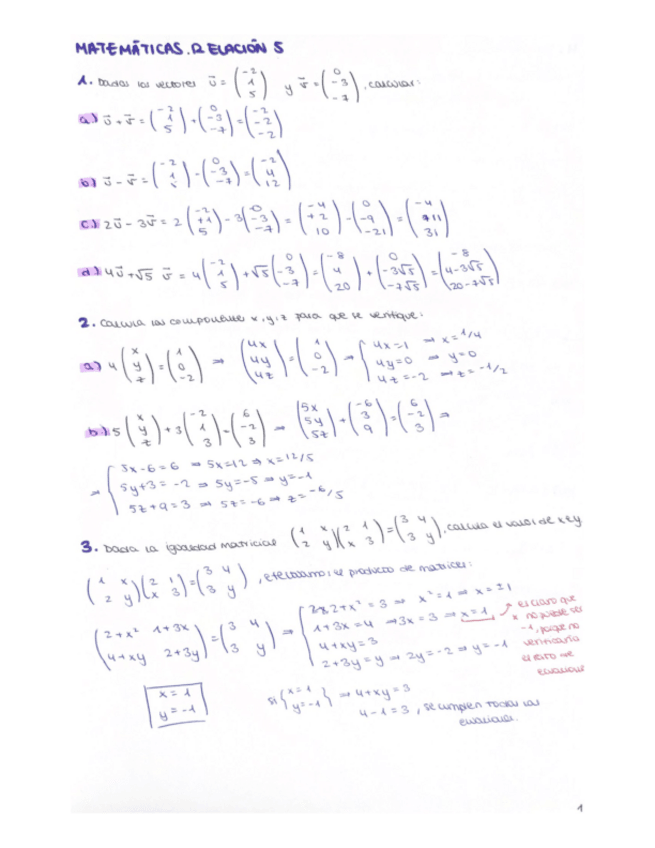 MATEMÁTICAS. RELACIÓN 5
1. Dados los vectores u⃗ = (-2 1 5) y v⃗ = (0 -3 -7), calcular:
a) u⃗ + v⃗ = (-2 1 5) + (0 -3 -7) = (-2 -2 -2)
b) u⃗ - v⃗ = (-2 1 5) - (0 -3 -7) = (-2 4 12)
c) 2u⃗ - 3v⃗ = 2 (-2 +1 5) - 3 (0 -3 -7) = (-4 +2 10) - (0 -9 -21) = (-4 11 31)
d) 4u⃗ + √5 v⃗ = 4 (-2 1 5) + √5 (0 -3 -7) = (-8 4 20) + (0 -3√5 -7√5) = (-8 4-3√5 20-7√5)
2. Calcula las componentes x, y, z para que se verifique:
a) 4 (x y z) = (1 0 -2) ⇒ (4x 4y 4z) = (1 0 -2) ⇒ { 4x = 1 ⇒ x = 1/4
4y = 0 ⇒ y = 0
4z = -2 ⇒ z = -1/2
b) 5 (x y z) + 3 (-2 1 3) = (6 -2 3) ⇒ (5x 5y 5z) + (-6 3 9) = (6 -2 3) ⇒
⇒ { 5x - 6 = 6 ⇒ 5x = 12 ⇒ x = 12/5
5y + 3 = -2 ⇒ 5y = -5 ⇒ y = -1
5z + 9 = 3 ⇒ 5z = -6 ⇒ z = -6/5
3. Dada la igualdad matricial (1 x 2 y)(2 1 x 3) = (3 4 3 y), calcula el valor de x e y
(1 x 2 y)(2 1 x 3) = (3 4 3 y), efectuamos el producto de matrices:
(2+x² 1+3x 4+xy 2+3y) = (3 4 3 y) ⇒ { 2+x² = 3 ⇒ x² = 1 ⇒ x = ±1
1+3x = 4 ⇒ 3x = 3 ⇒ x = 1
4+xy = 3
2+3y = y ⇒ 2y = -2 ⇒ y = -1
es claro que
x no puede ser
-1, porque no
verificaría
el resto de
ecuaciones
x = 1
y = -1
si { x = 1 y = -1 } ⇒ 4+xy = 3
4 - 1 = 3, se cumplen todas las
ecuaciones.
1